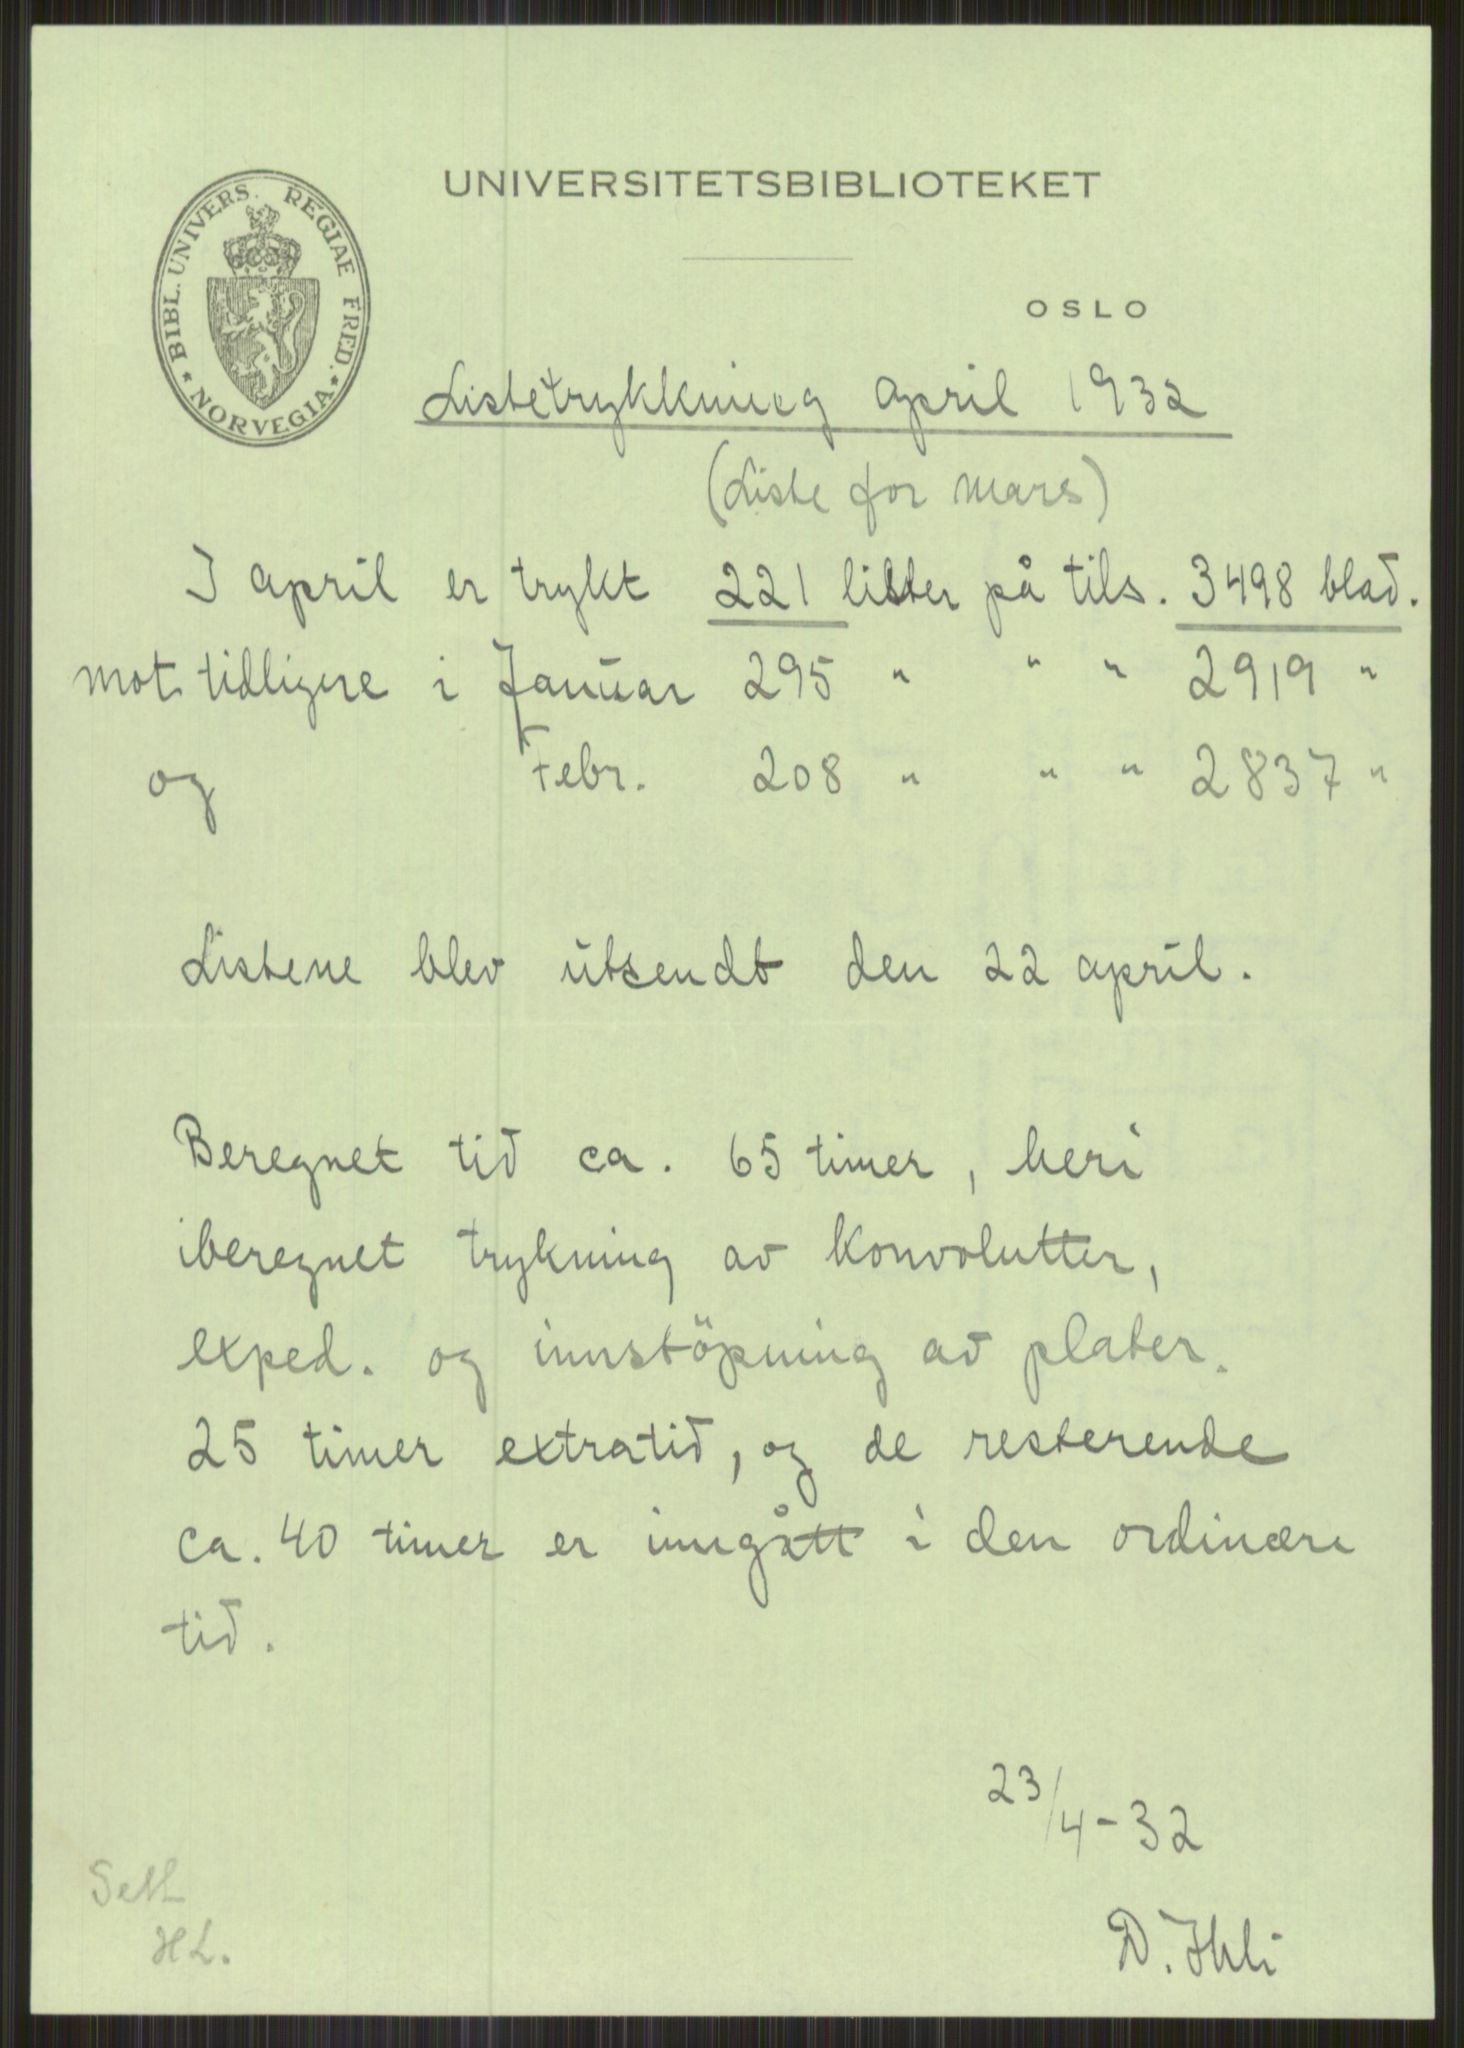 UNIVERSITETSBIBLIOTEKET
BIBL. UNIVERS. REGIAE FRED. * NORVEGIA *
OSLO
Listetrykkning april 1932
(Liste for mars)
I april er trykt 221 lister på tils. 3498 blad.
mot tidligere i Januar 295 " " " 2919 "
og Febr. 208 " " " 2837 "
Listene blev utsendt den 22 april.
Beregnet tid ca. 65 timer, heri
iberegnet trykning av konvolutter,
exped. og innstöpning av plater.
25 timer extratid, og de resterende
ca. 40 timer er inngått i den ordinære
tid.
23/4-32
D. Ihli
HL.